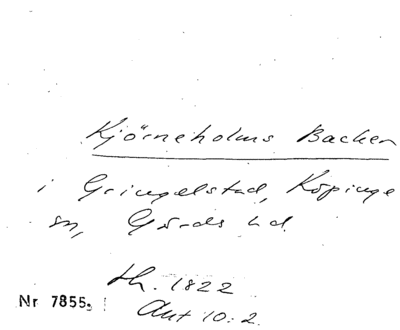 Kjörneholms Backen
i Gringelstad, Köpinge
sn, Gärds hd.
th. 1822
Aut 10:2.
Nr 7855.